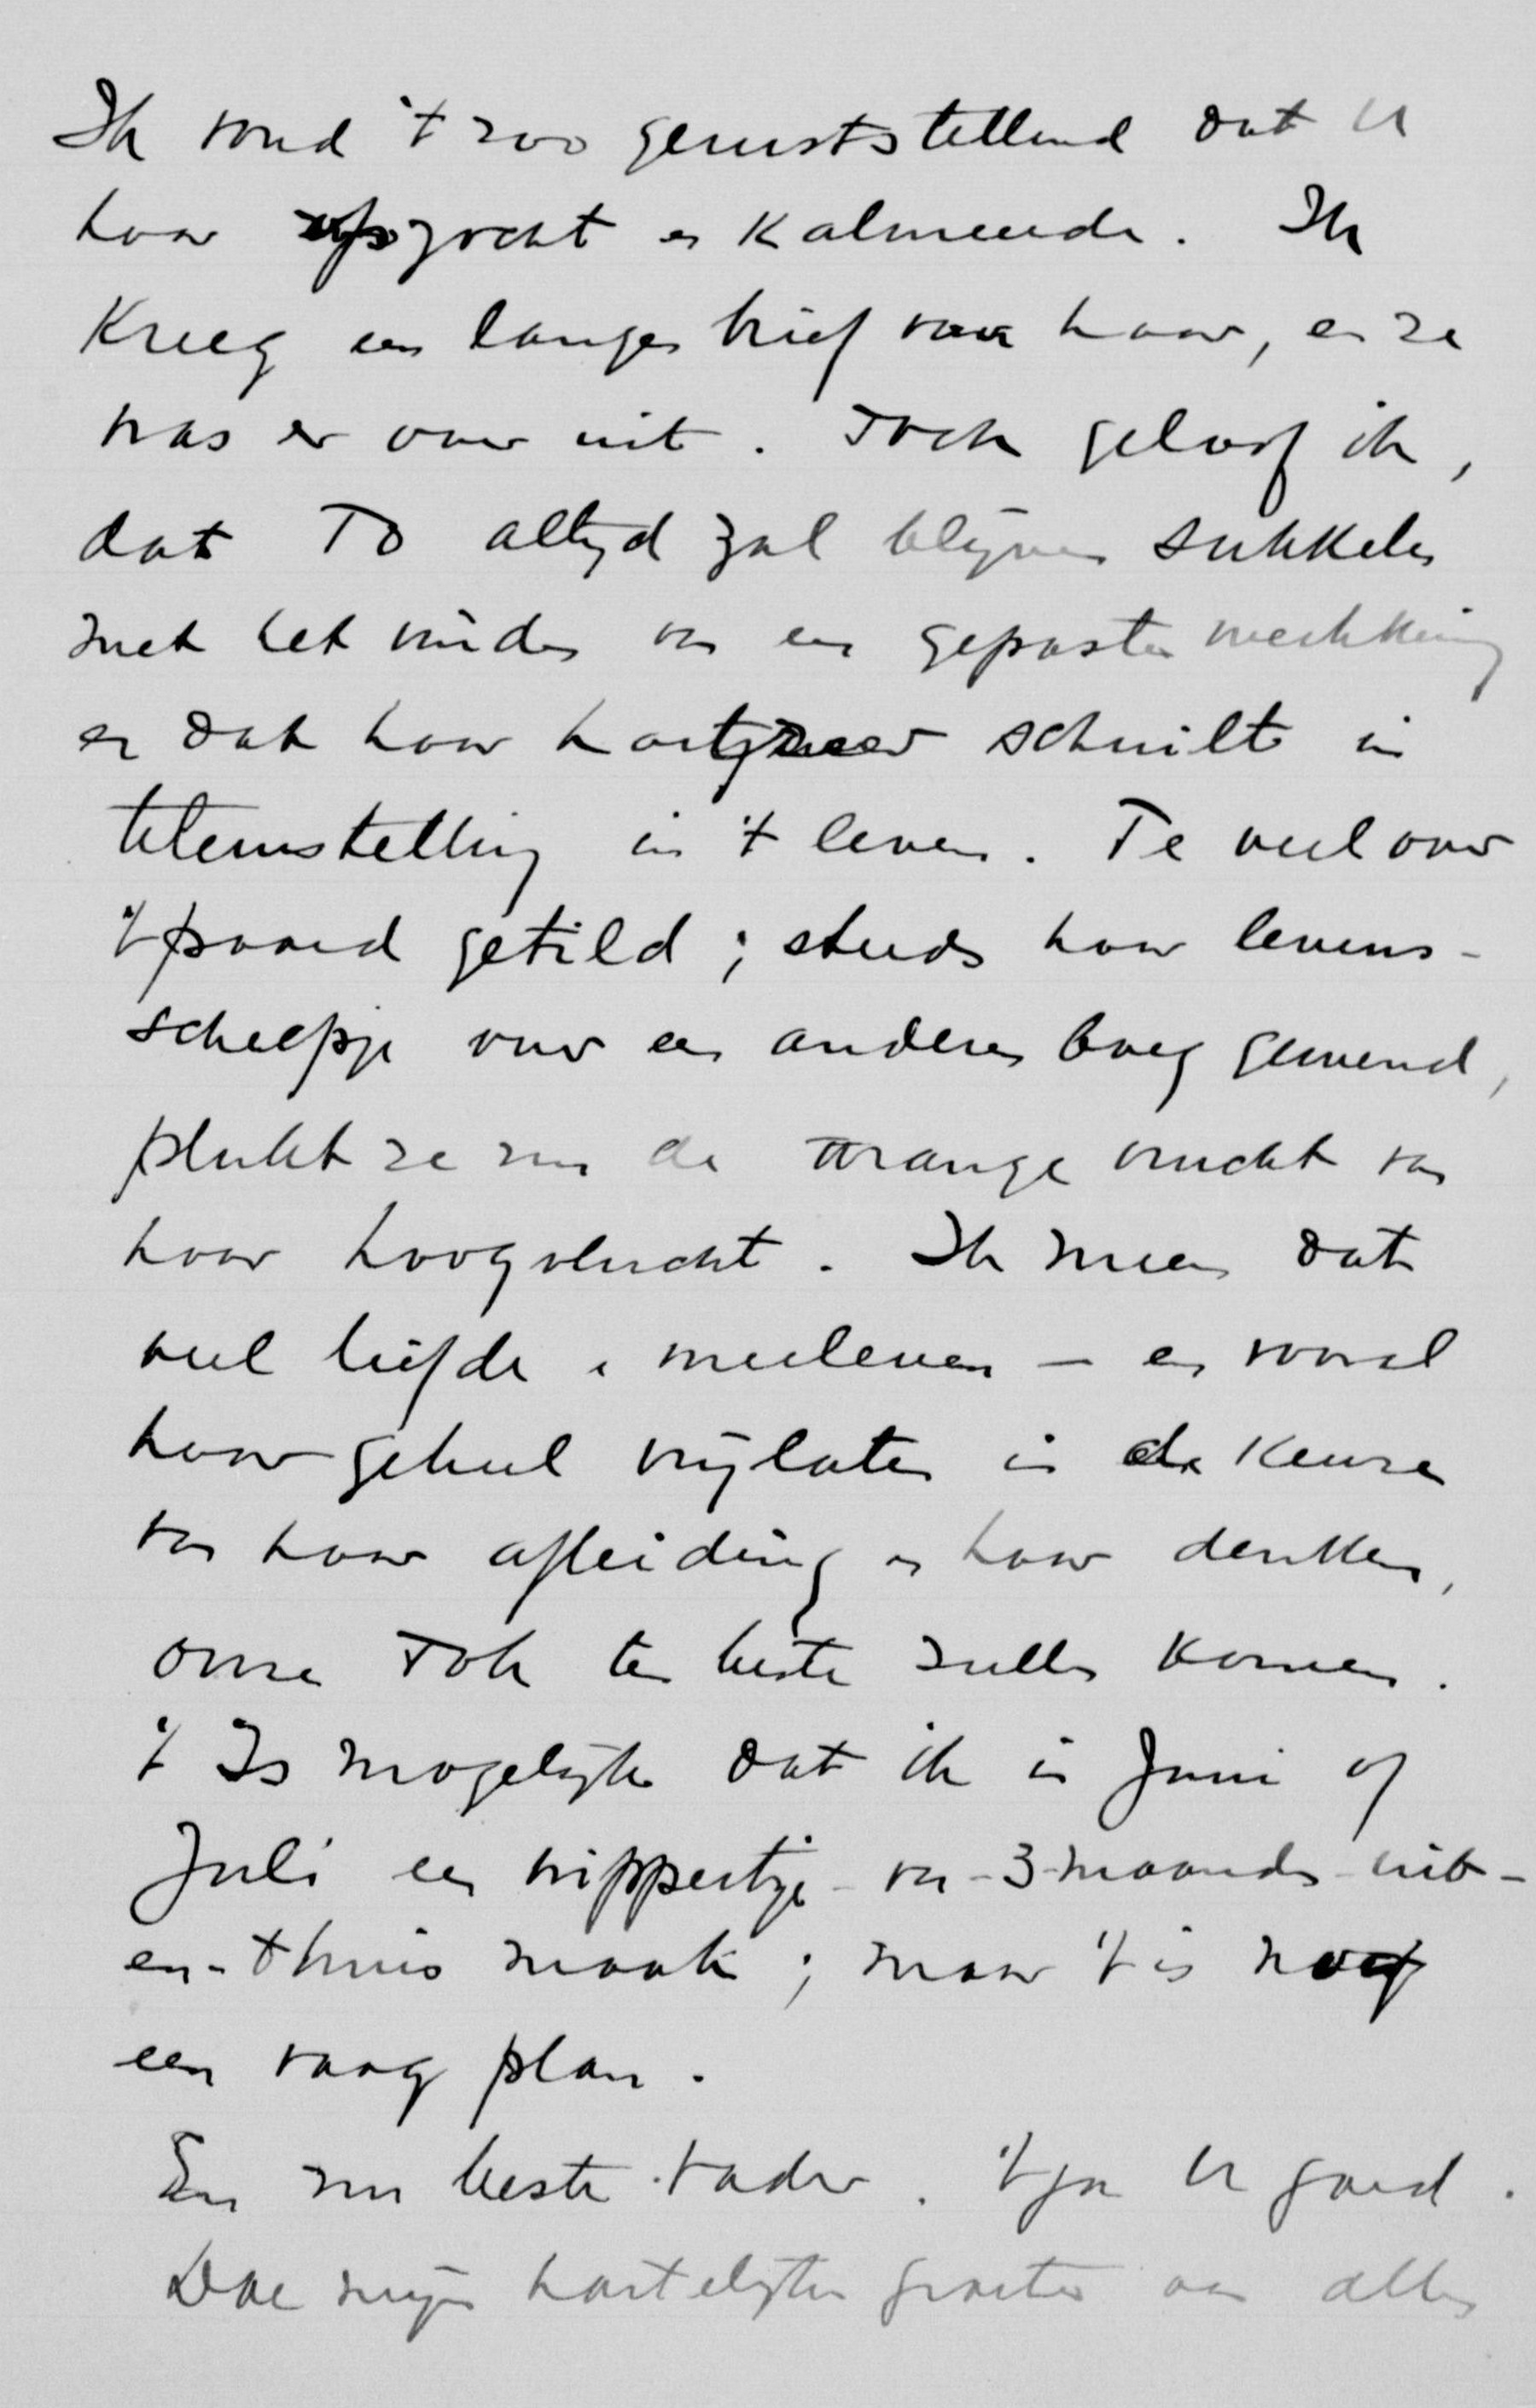 Ik vond 't zoo geruststellend dat U
haar opzocht en kalmeerde. Ik
kreeg een langen brief van haar, en ze
was er over uit. Toch geloof ik,
dat To altijd zal blijven sukkelen
met het vinden van een gepasten werkkring
en dat haar hartzeer schuilt in
teleurstelling in 't leven. Te veel over
't paard getild; steeds haar levens-
scheepje over een anderen boeg gewend,
plukt ze nu de wrange vrucht van
haar hoogvlucht. Ik meen dat
veel liefde en meeleven – en vooral
haar geheel vrijlaten in de keuze
van haar afleiding en haar denken,
onze Toh ten beste zullen komen.
't Is mogelijk dat ik in Juni of
Juli een wippertje-van-3-maands-uit-
en-thuis maak; maar 't is nog
een vaag plan.
En nu beste Vader. 't ga U goed.
Doe mijn hartelijke groeten aan allen